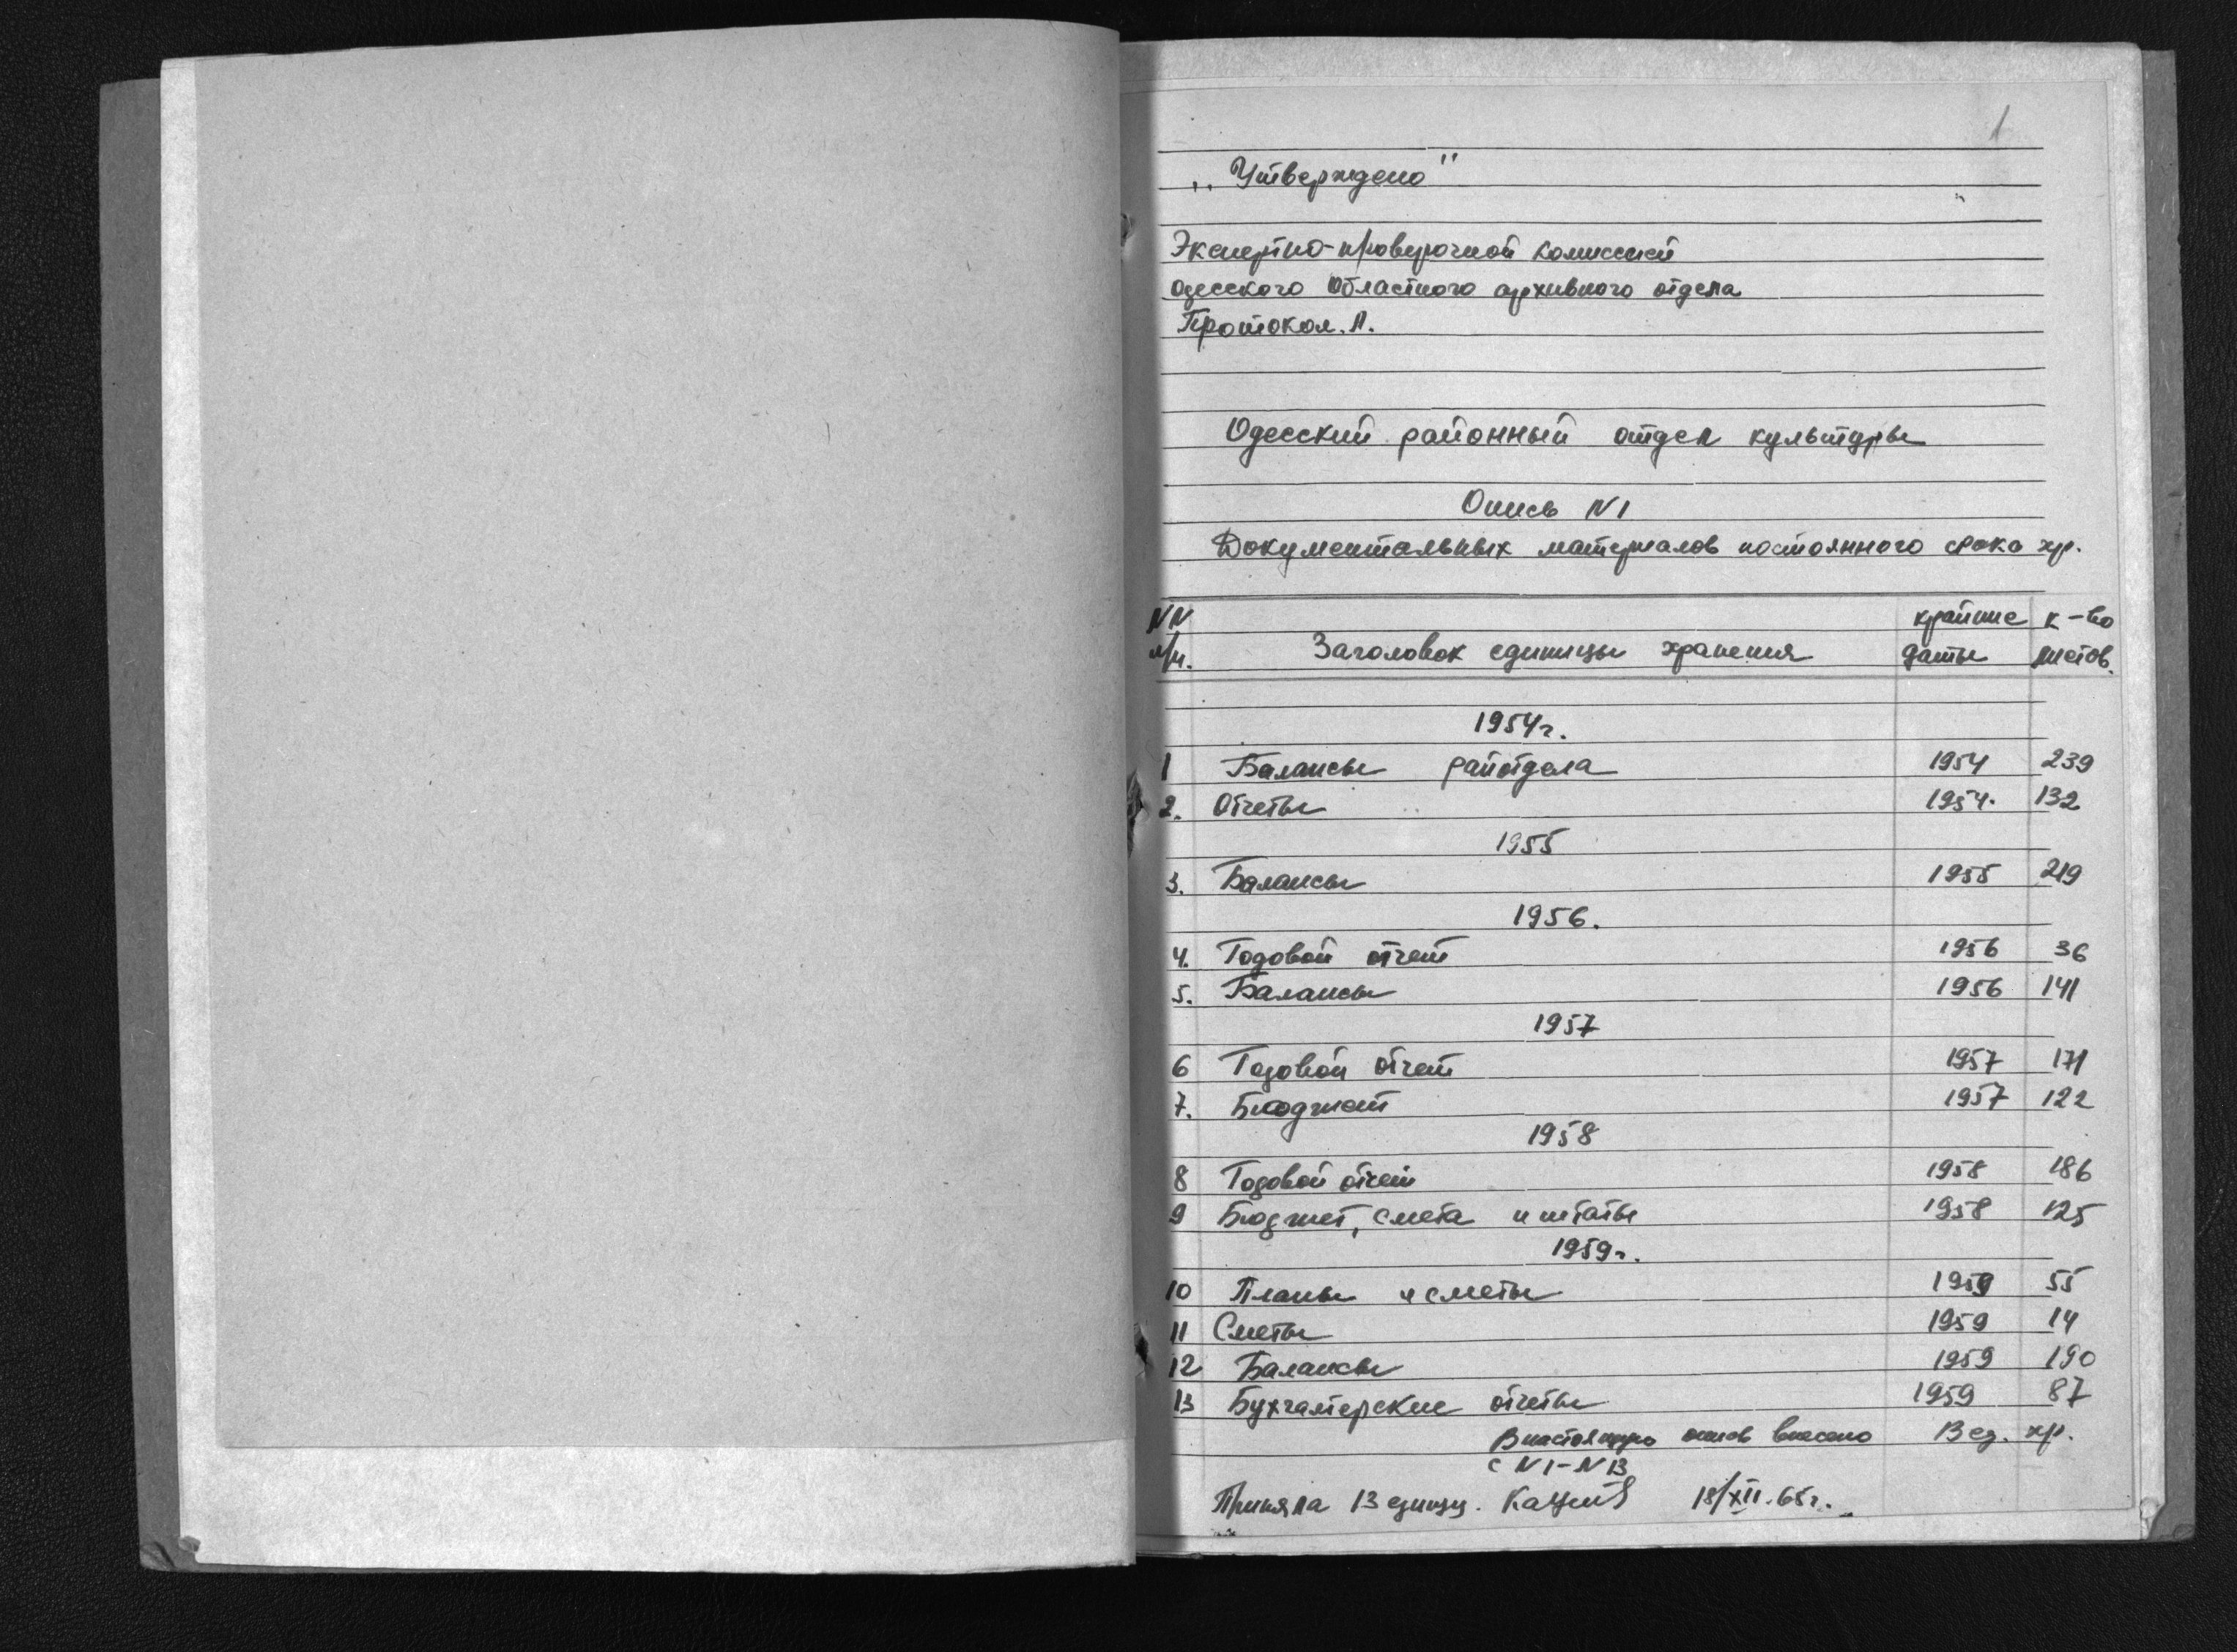 1
„Утверждено"
Экспертно-проверочной комиссией
одесского областного архивного отдела
Протокол.
Одесский районный отдел культуры
Опись N1
Документальных материалов постоянного срока хр.
NN п/п. Заголовок единицы хранения крайние даты к-во листов.
1954г.
1 Балансы райотдела 1954 239
2. Отчеты 1954. 132
1955
3. Балансы 1955 219
1956.
4. Годовой отчет 1956 36
5. Балансы 1956 141
1957
6 Годовой отчет 1957 171
7. Бюджет 1957 122
1958
8 Годовой отчет 1958 186
9 Бюджет, смета и штаты 1958 125
1959г.
10 Планы и сметы 1959 55
11 Сметы 1959 14
12 Балансы 1959 190
13 Бухгалтерские отчеты 1959 87
В настоящую опись внесено 13 ед. хр.
с N1-N13
Приняла 13 единиц. 18/XII.65г.